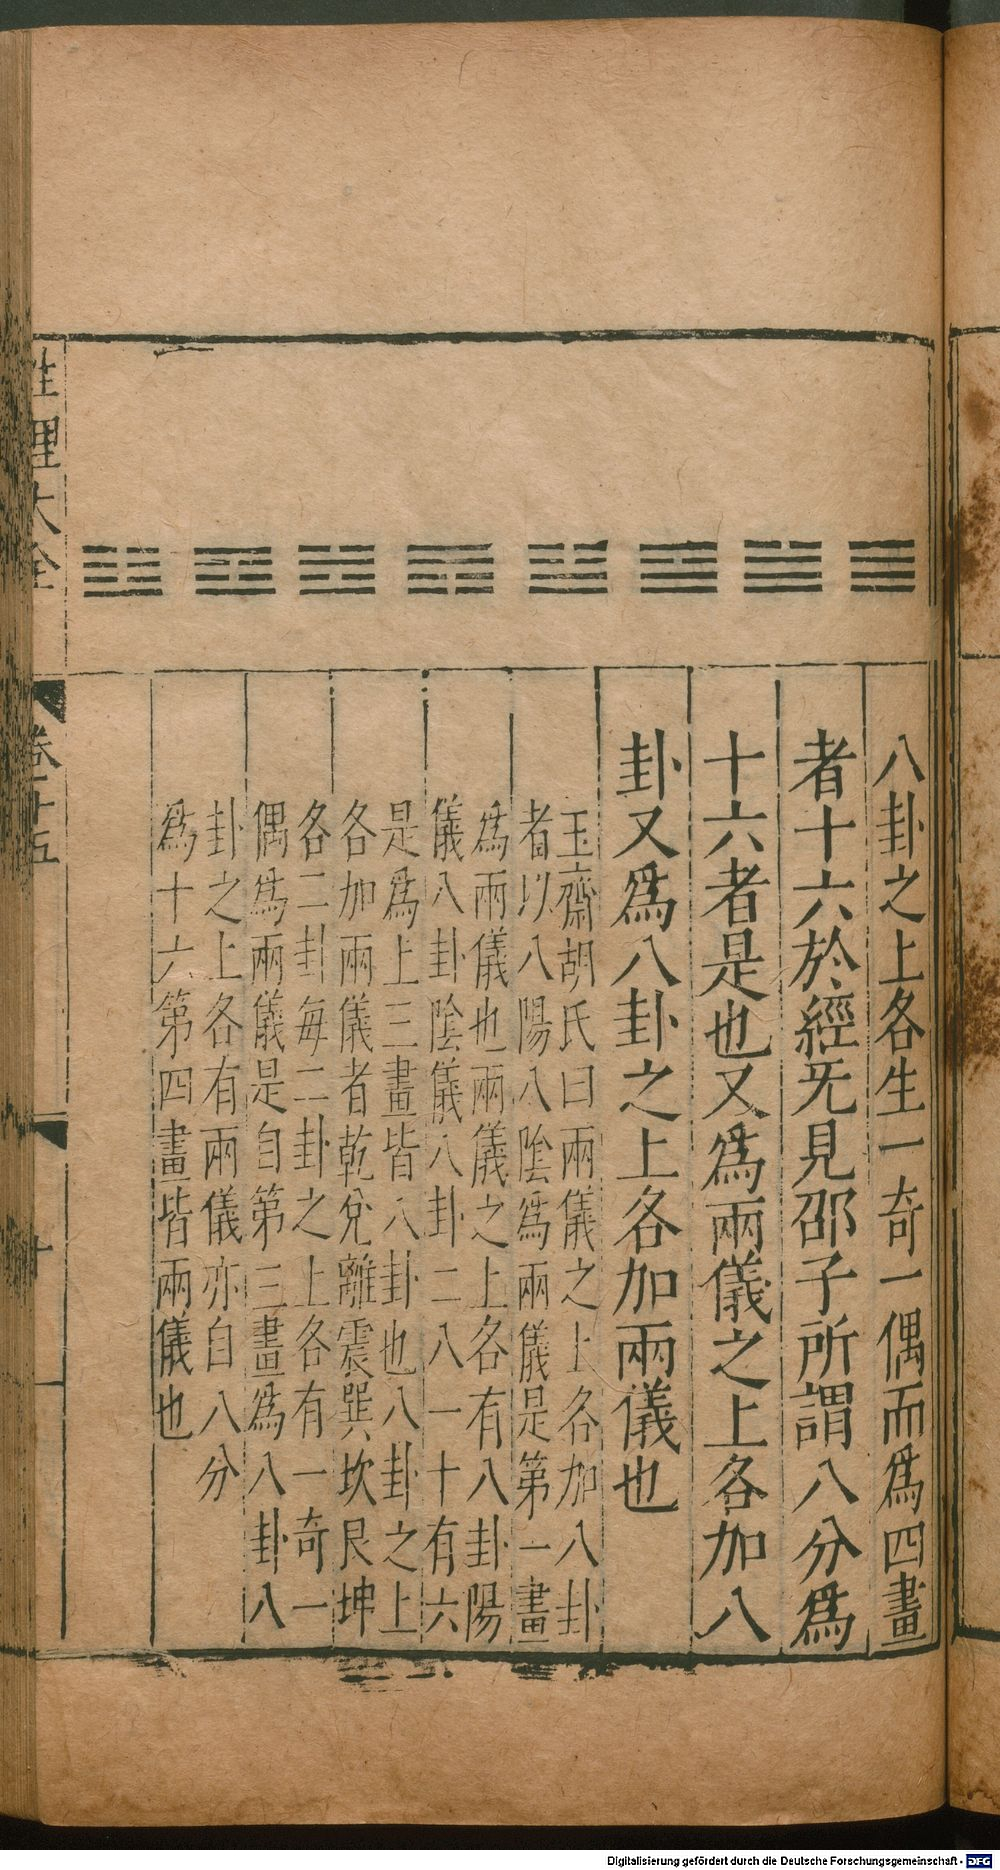 八卦之上各生一奇一偶而為四畫
者十六於經旡見邵子所謂八分為
十六者是也又為兩儀之上各加八
卦又為八卦之上各加兩儀也
玉齋胡氏曰兩儀之上各加八卦
者以八陽八陰為兩儀是第一畫
為兩儀也兩儀之上各有八卦陽
儀八卦陰儀八卦二八一十有六
是為上三畫皆八卦也八卦之上
各加兩儀者乾兌離震巽坎艮坤
各二卦每二卦之上各有一奇一
偶為兩儀是自第三畫為八卦八
卦之上各有兩儀亦自八分
為十六第四畫皆兩儀也
性理大全
卷十五
十
Digitalisierung gefördert durch die Deutsche Forschungsgemeinschaft - DFG